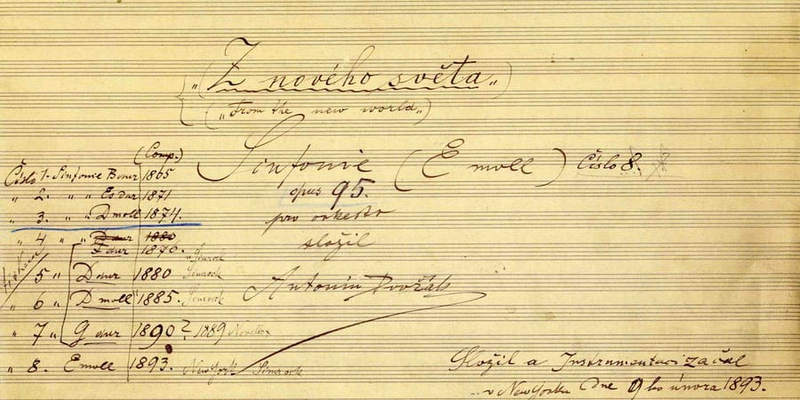 „Z nového světa„
(„From the new world„)
Sinfonie (E moll) Číslo 8.
opus 95.
pro orkestr
složil
Antonín Dvořák
(Comp.)
Číslo 1. Sinfonie B dur 1865
„ 2. „ „ Es dur 1871
„ 3. „ „ D moll 1874.
„ 4 „ „ D dur 1880
F dur 1870.
„ 5 „ D dur 1880 Simrock
„ 6 „ D moll 1885. Simrock
„ 7 „ G dur 1890? 1889 Novello
„ 8. E moll 1893. New York Simrock
Složil a Instrumentaci začal
v New Yorku dne 9ho února 1893.